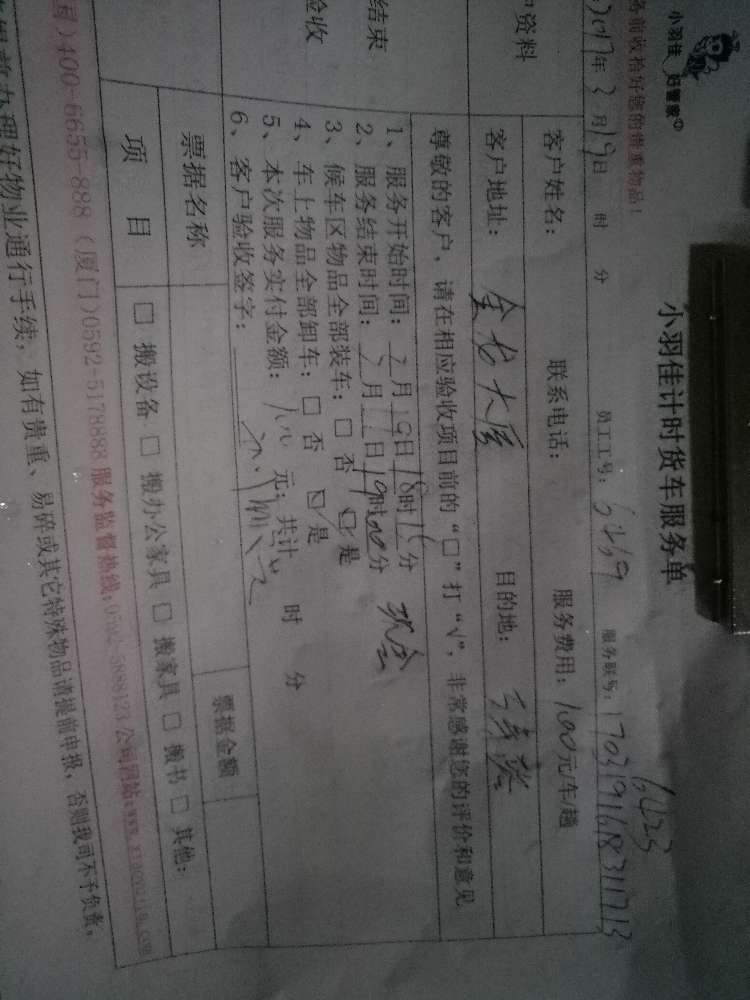 小羽佳 好管家
小羽佳计时货车服务单
务前收拾好您的贵重物品!
2017年3月19日 时 分 员工工号: 服务账号:
户资料
客户姓名: 联系电话: 服务费用:100元/车/趟
客户地址:金龙大厦 目的地:
结束
验收
尊敬的客户,请在相应验收项目前的“□”打“√”,非常感谢您的评价和意见
1、服务开始时间:3月19日18时16分 现金
2、服务结束时间:3月19日19时00分
3、候车区物品全部装车:□否 ☑是
4、车上物品全部卸车:□否 ☑是
5、本次服务实付金额:100元;共计 时 分
6、客户验收签字:
票据名称 票据金额
项 目 □搬设备 □搬办公家具 □搬家具 □搬书 □其他:
国)400-6655-888(厦门)0592-5178888 服务监督热线:0592-5888123 公司网站:www.xiaoyujia.com
提前办理好物业通行手续,如有贵重、易碎或其它特殊物品请提前申报,否则我司不予负责。